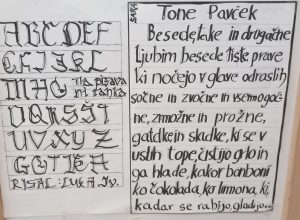 ABCDEF
GHIJKL
MNO
Ta pisava
ni lahka
PQRSŠT
UVXYZ
GOTIKA
RISAL: LUKA
Tone Pavček
Besede, take in drugačne
Ljubim besede tiste prave
ki nočejo v glave odraslih
sočne in zvočne in vsemogoč-
ne, zmožne in prožne,
gladke in sladke, ki se v
ustih tope, čistijo grlo in
ga hlade, kakor bonboni
ko čokolada, ko limona, ki,
kadar se rabijo, gladijo...